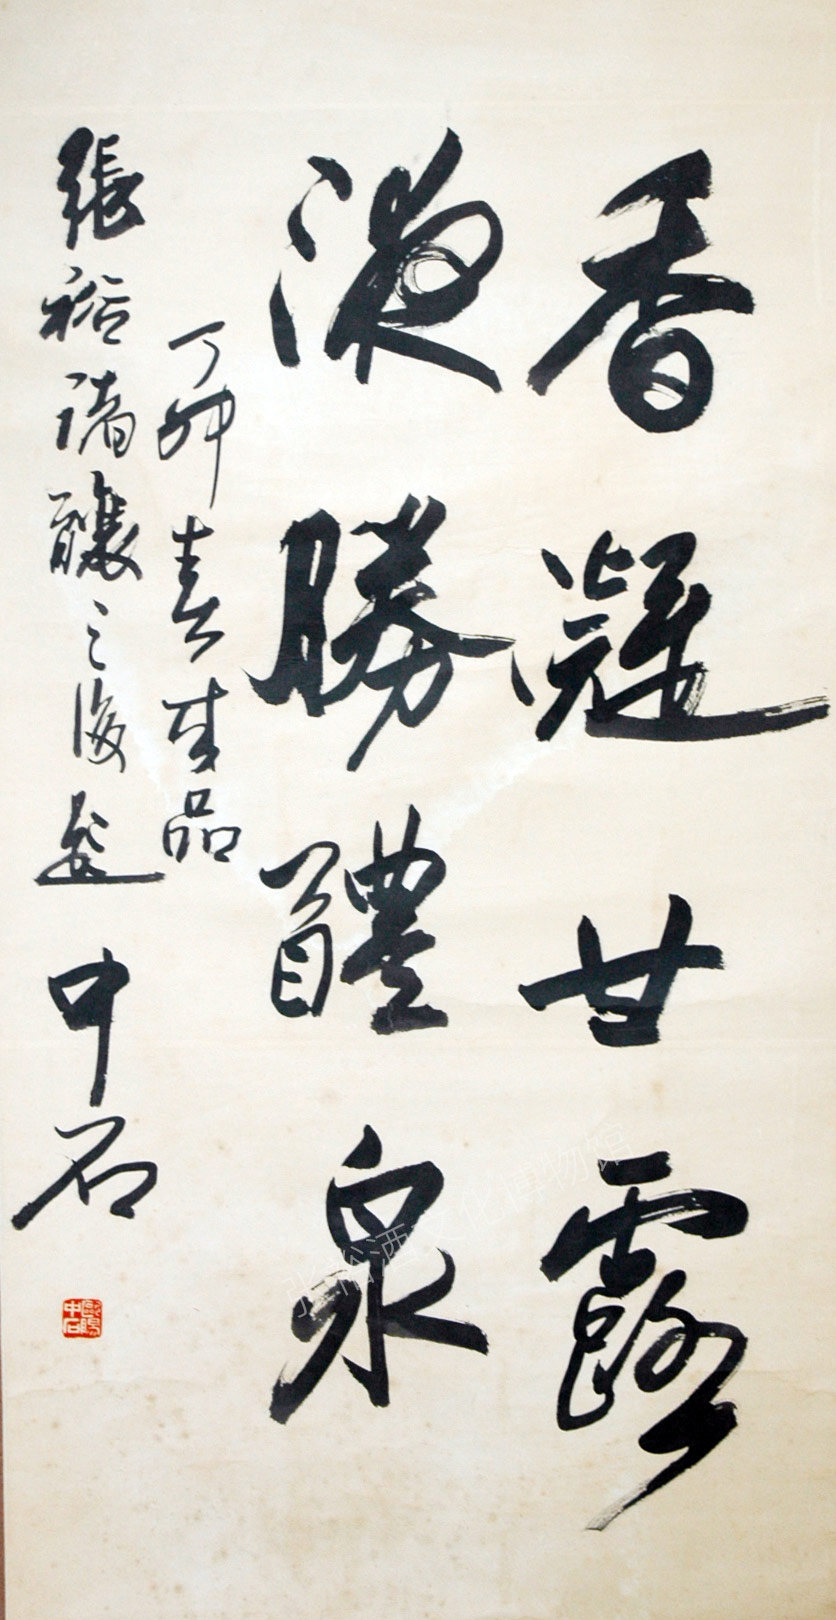 香凝甘露
液勝醴泉
丁卯春來品
張裕諸釀之後題 中石
歐陽中石
张裕酒文化博物馆